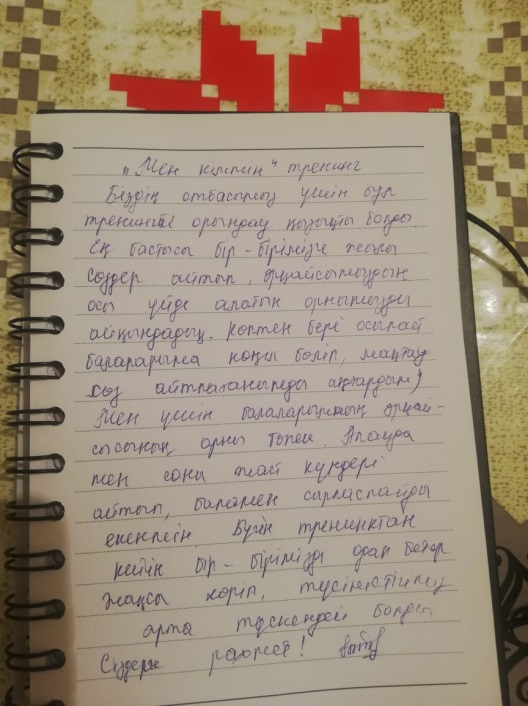 „Мен кіммін" тренинг
Біздің отбасымыз үшін бұл
тренингті орындау қызықты болды.
Ең бастысы бір-бірімізге жылы
сөздер айтып, әрқайсымыздың
осы үйде алатын орнымызды
айқындадық. Көптен бері осылай
балаларыма көңіл бөліп, мақтау
сөз айтпағанымды аңғардым)
Мен үшін балаларымның әрқай-
сысының орны бөлек. Алайда
мен соны жай күндері
айтып, баламен сырласпайды
екенмін. Бүгін тренингтан
кейін бір-бірімізді одан бетер
жақсы көріп, түсіністігіміз
арта түскендей болды
Сіздерге рахмет!